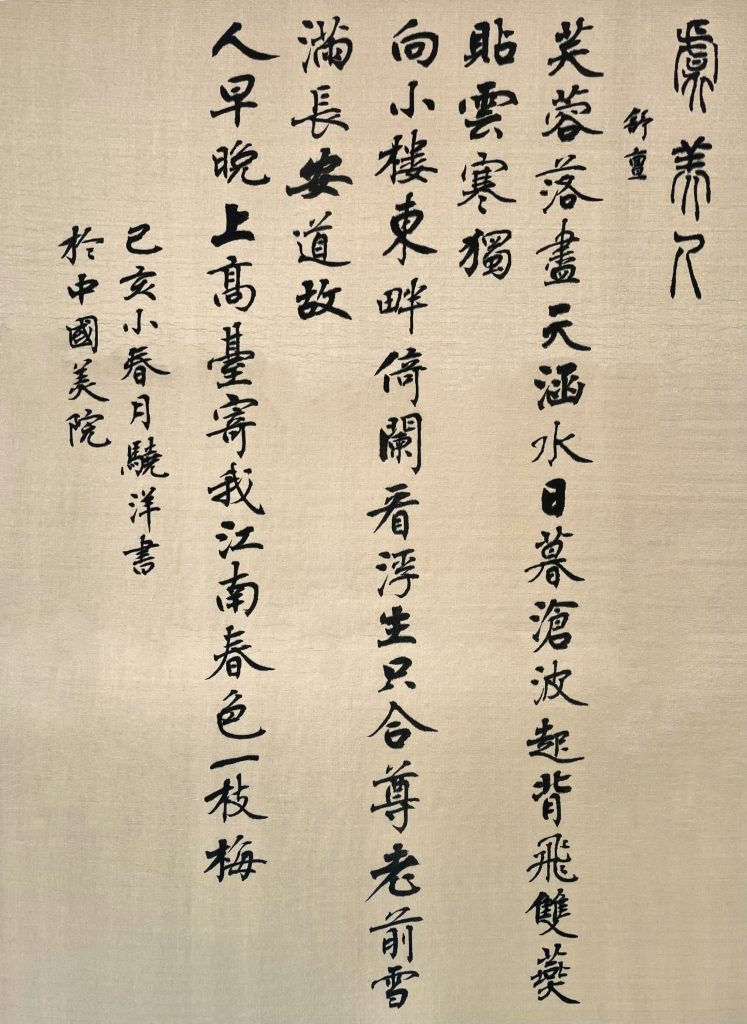 虞美人
舒亶
芙蓉落盡天涵水日暮滄波起背飛雙燕
貼雲寒獨
向小樓東畔倚闌看浮生只合尊老前雪
滿長安道故
人早晚上高臺寄我江南春色一枝梅
己亥小春月驍洋書
於中國美院